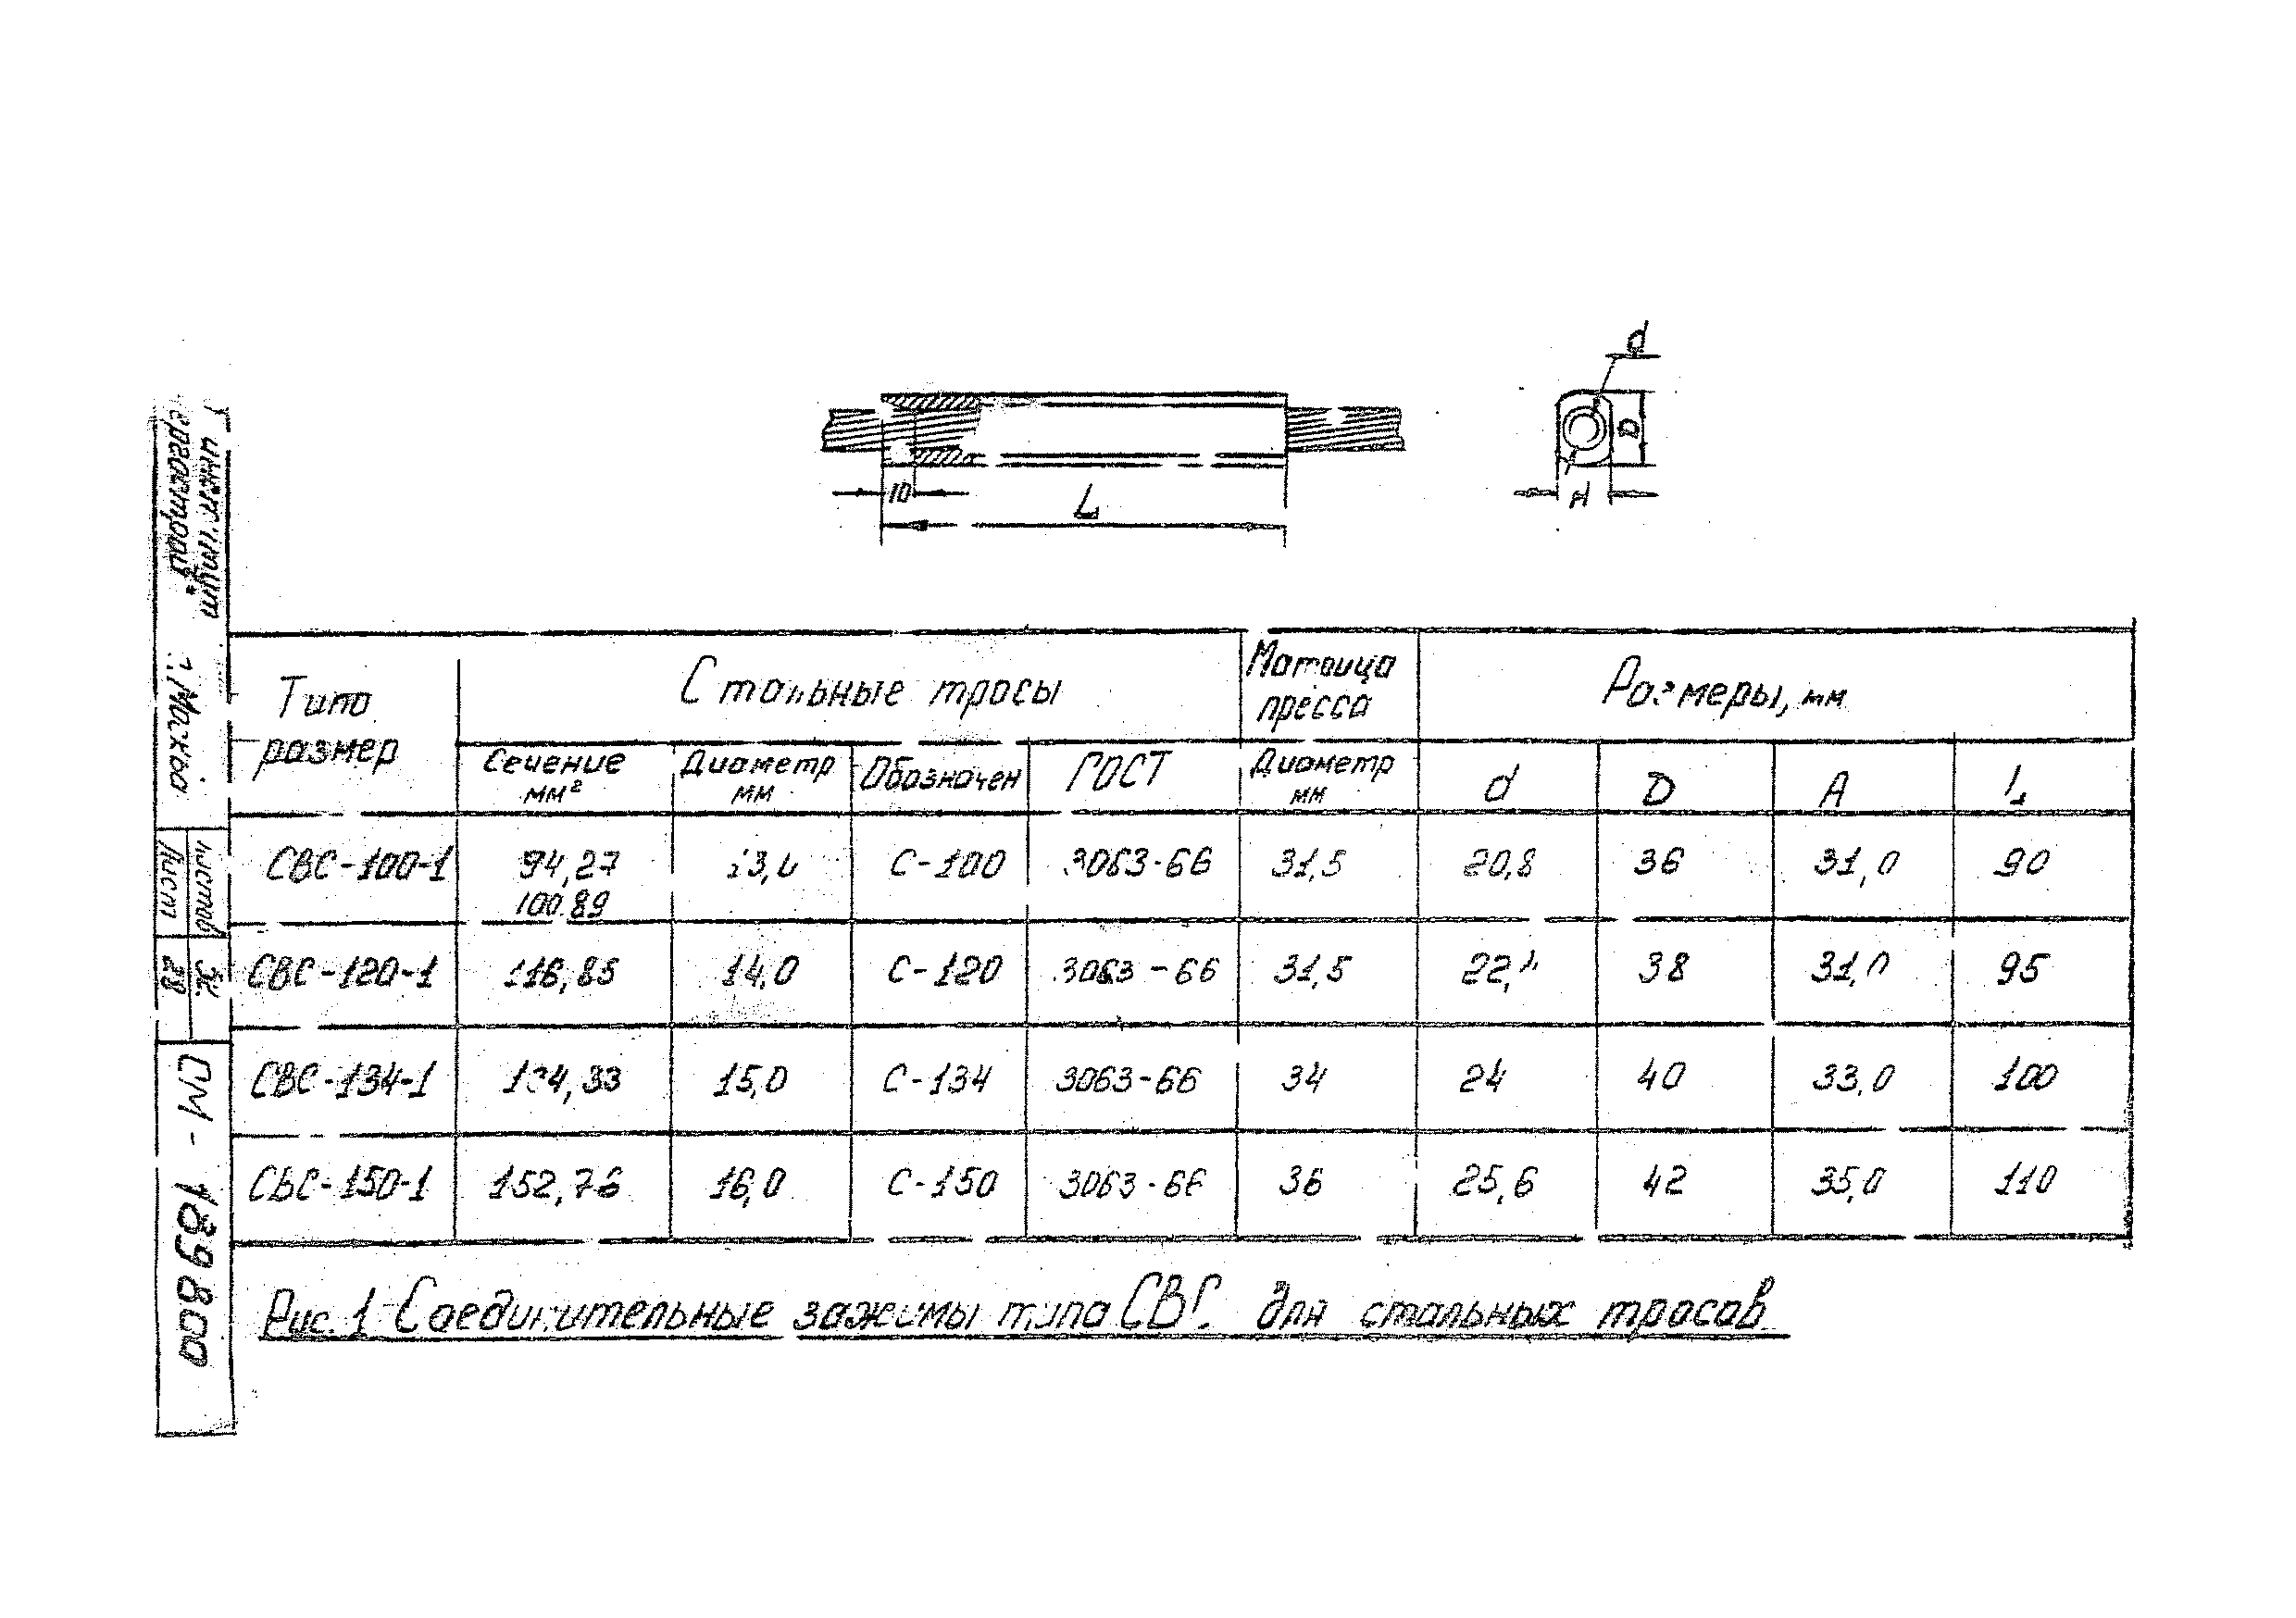 d
D
10
L
A
Типо размер
Стальные тросы
Матрица пресса
Размеры, мм
Сечение мм² Диаметр мм Обозначен ГОСТ Диаметр мм d D A L
СВС-100-1 94,27 С-100 3063-66 31,5 20,8 36 31,0 90
100.89
СВС-120-1 116,85 14,0 С-120 3063-66 31,5 38 31,0 95
СВС-134-1 134,33 15,0 С-134 3063-66 34 24 40 33,0 100
СВС-150-1 152,76 16,0 С-150 3063-66 36 25,6 42 35,0 110
Рис. 1 Соединительные зажимы типа СВС для стальных тросов
г. Москва
Листов
Лист 28
СМ - 189800